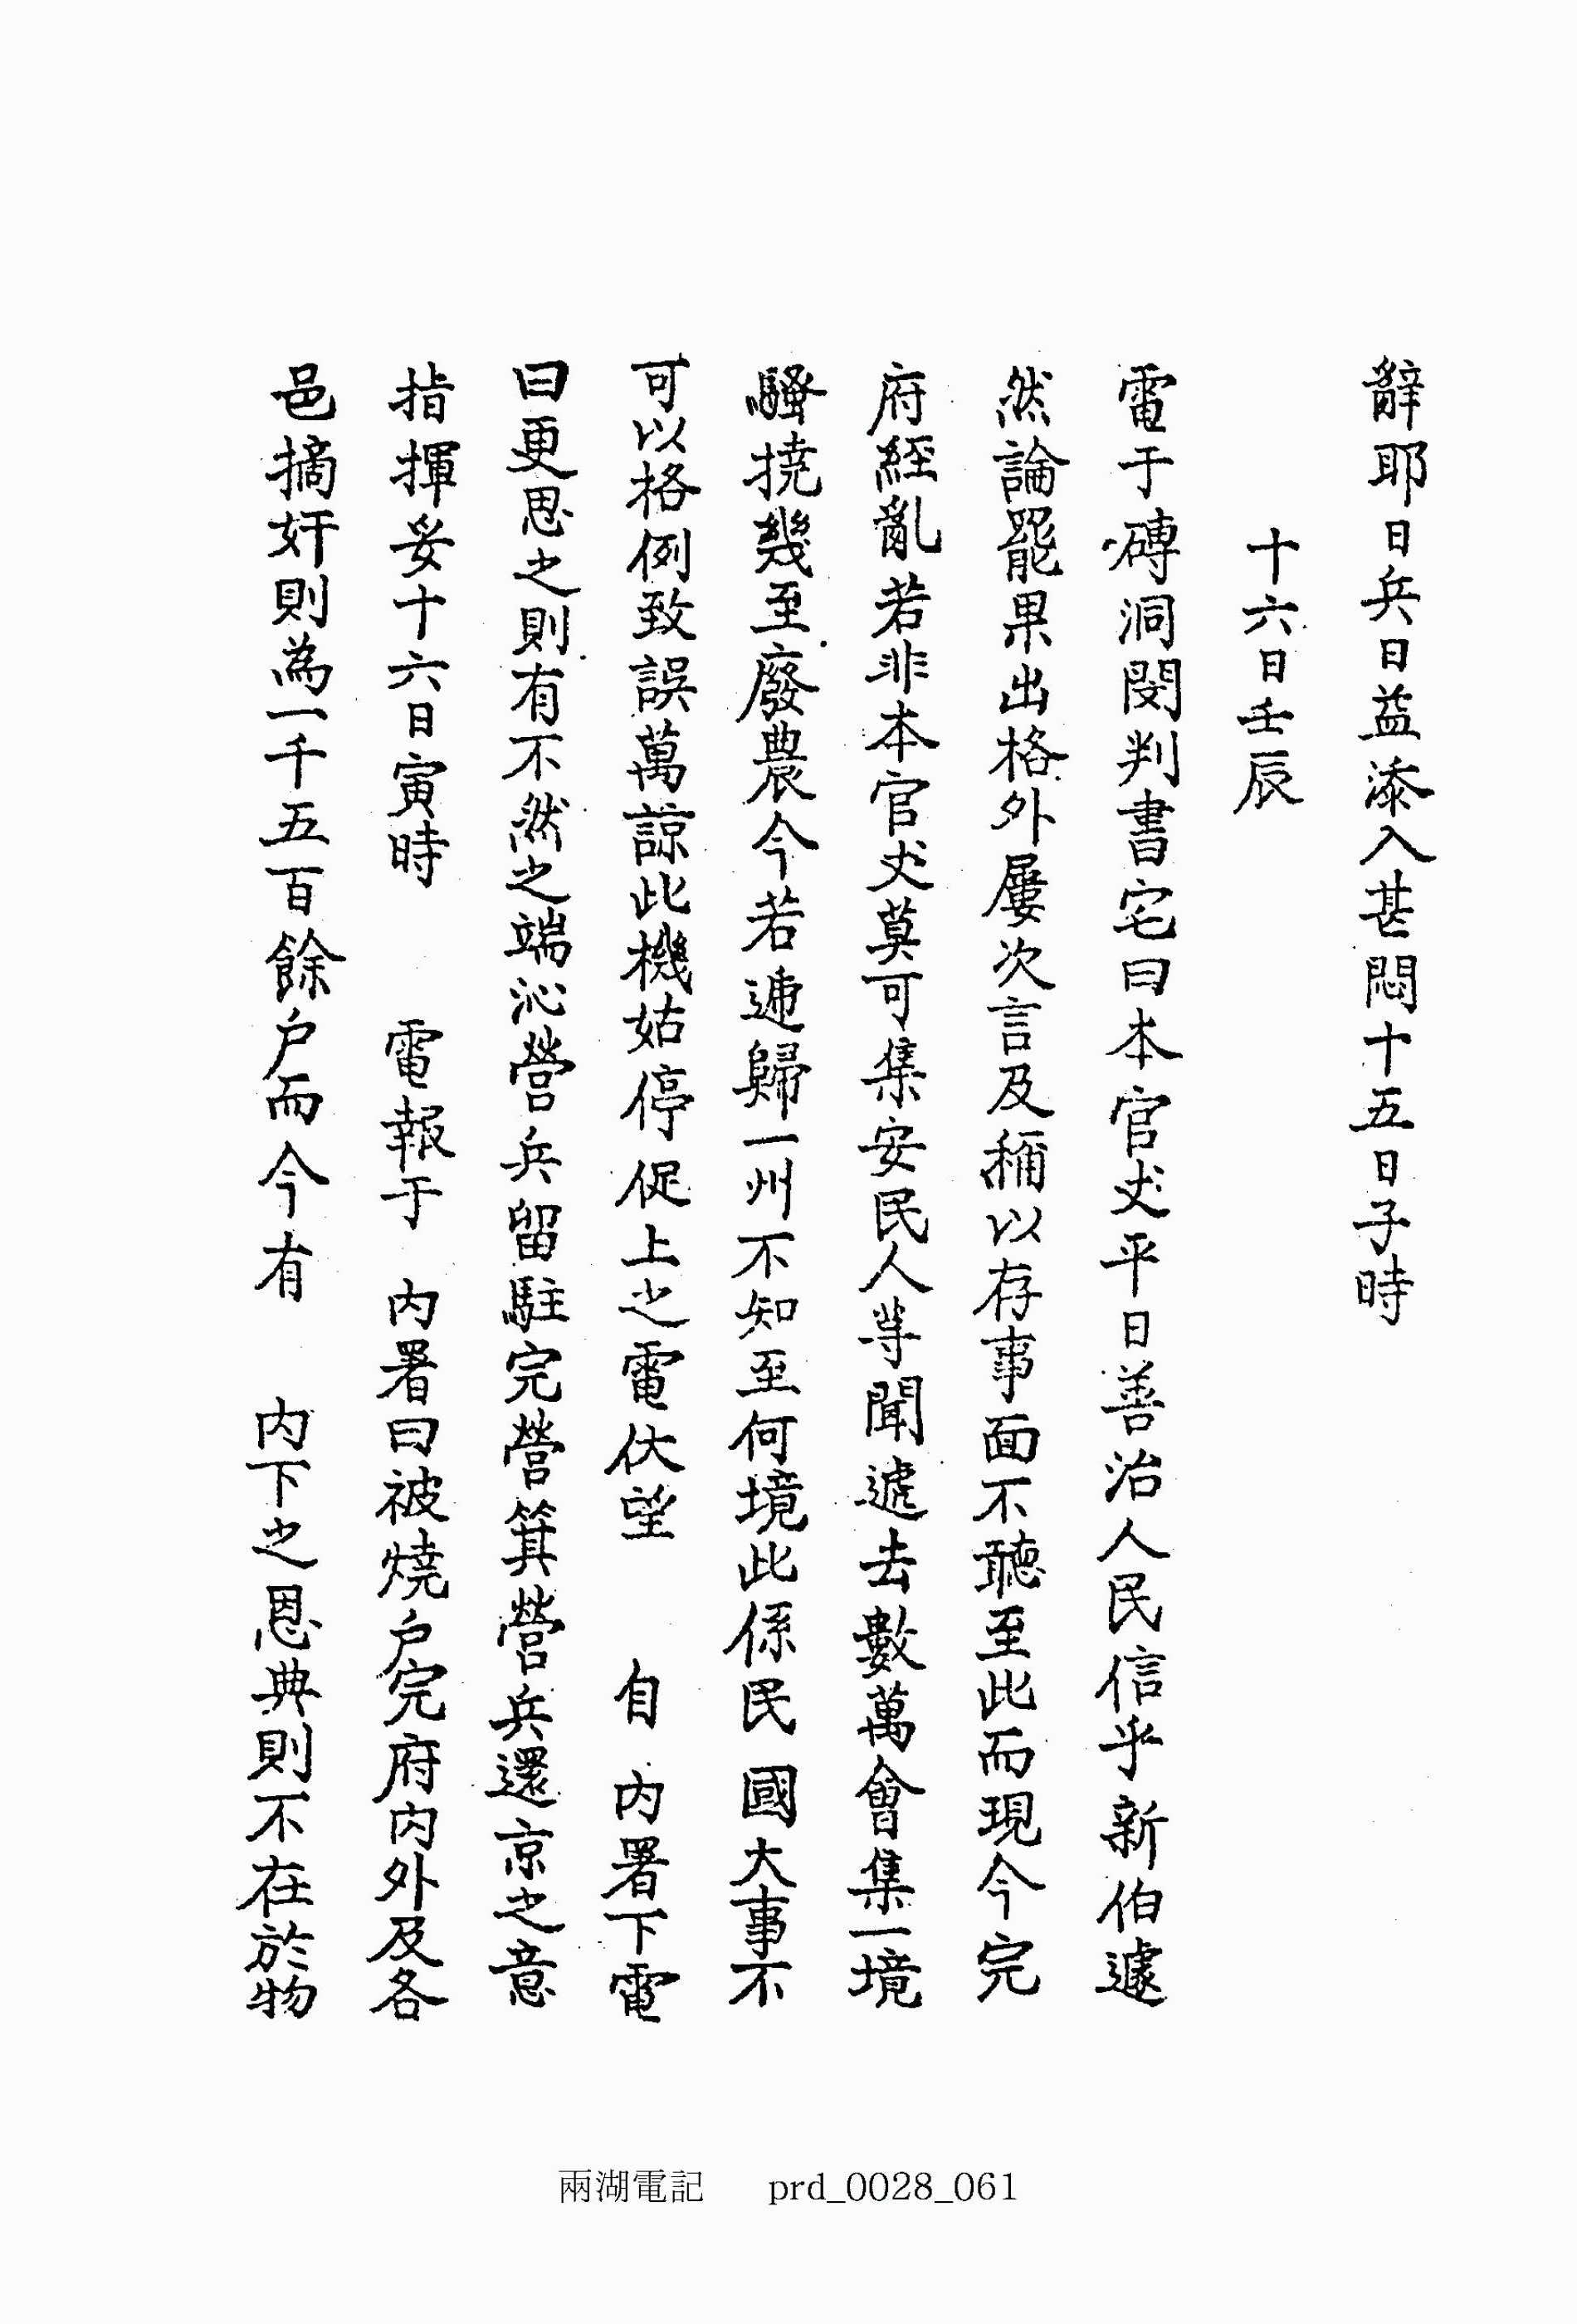 辭耶日兵日益添入甚悶十五日子時
十六日壬辰
電于磚洞閔判書宅曰本官丈平日善治人民信乎新伯遽
然論罷果出格外屢次言及稱以存事面不聽至此而現今完
府經亂若非本官丈莫可集安民人等聞遞去數萬會集一境
騷撓幾至廢農今若遞歸一州不知至何境此係民 國大事不
可以格例致誤萬諒此機姑停促上之電伏望 自 內署下電
曰更思之則有不然之端沁營兵留駐完營箕營兵還京之意
指揮妥十六日寅時 電報于 內署曰被燒戶完府內外及各
邑摘奸則為一千五百餘戶而今有 內下之恩典則不在於物
兩湖電記 prd_0028_061